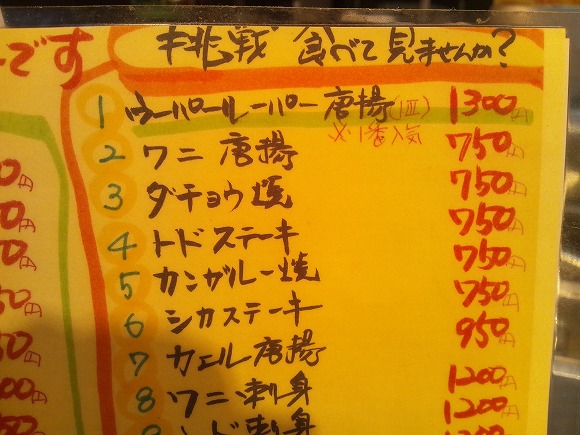 です
挑戦 食べて見ませんか？
1 ウーパールーパー 唐揚(1匹) 1300円
※1番人気
2 ワニ 唐揚 750円
3 ダチョウ焼 750円
4 トドステーキ 750円
5 カンガルー焼 750円
6 シカステーキ 750円
7 カエル唐揚 950円
8 ワニ刺身 1200円
刺身 1200円